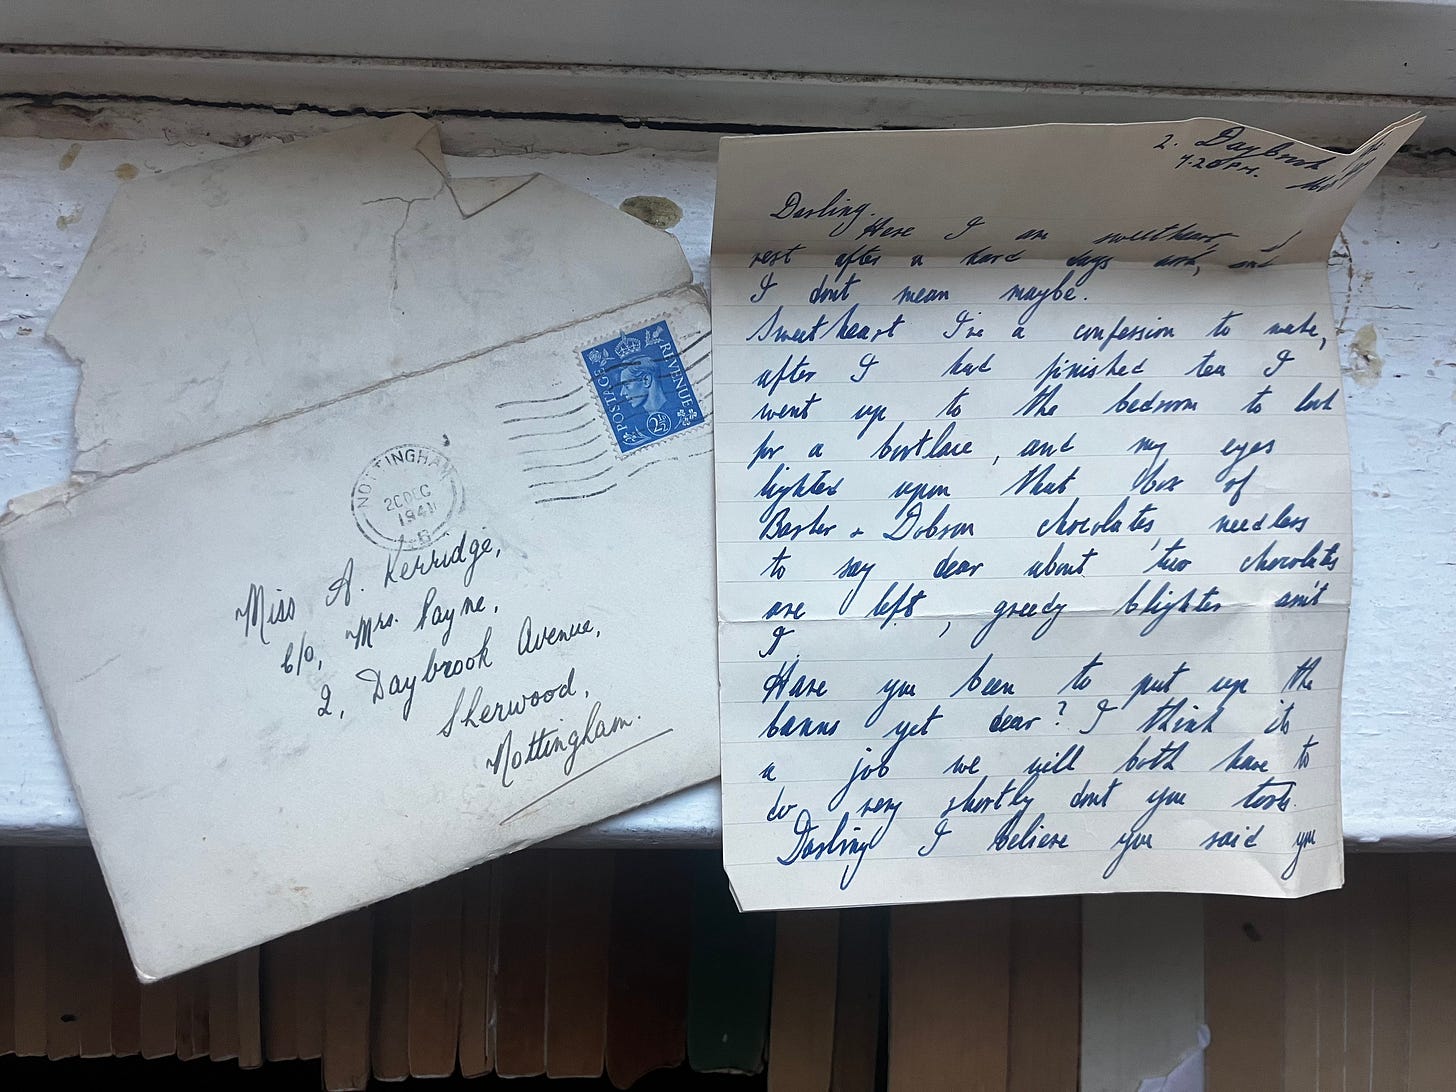 NOTTINGHAM
20 DEC
1941
POSTAGE
REVENUE
2½
Miss A. Kerridge,
C/o, Mrs. Payne,
2, Daybrook Avenue,
Sherwood,
Nottingham.
2. Daybrook
7.20PM.
Darling.
Here I am sweetheart,
rest after a hard days work, and
I dont mean maybe.
Sweetheart I've a confession to make,
after I had finished tea I
went up to the bedroom to look
for a bootlace, and my eyes
lighted upon that box of
Barker & Dobson chocolates, needless
to say dear about two chocolates
are left, greedy blighter ain't
I.
Have you been to put up the
banns yet dear? I think its
a job we will both have to
do very shortly dont you toots.
Darling I believe you said you